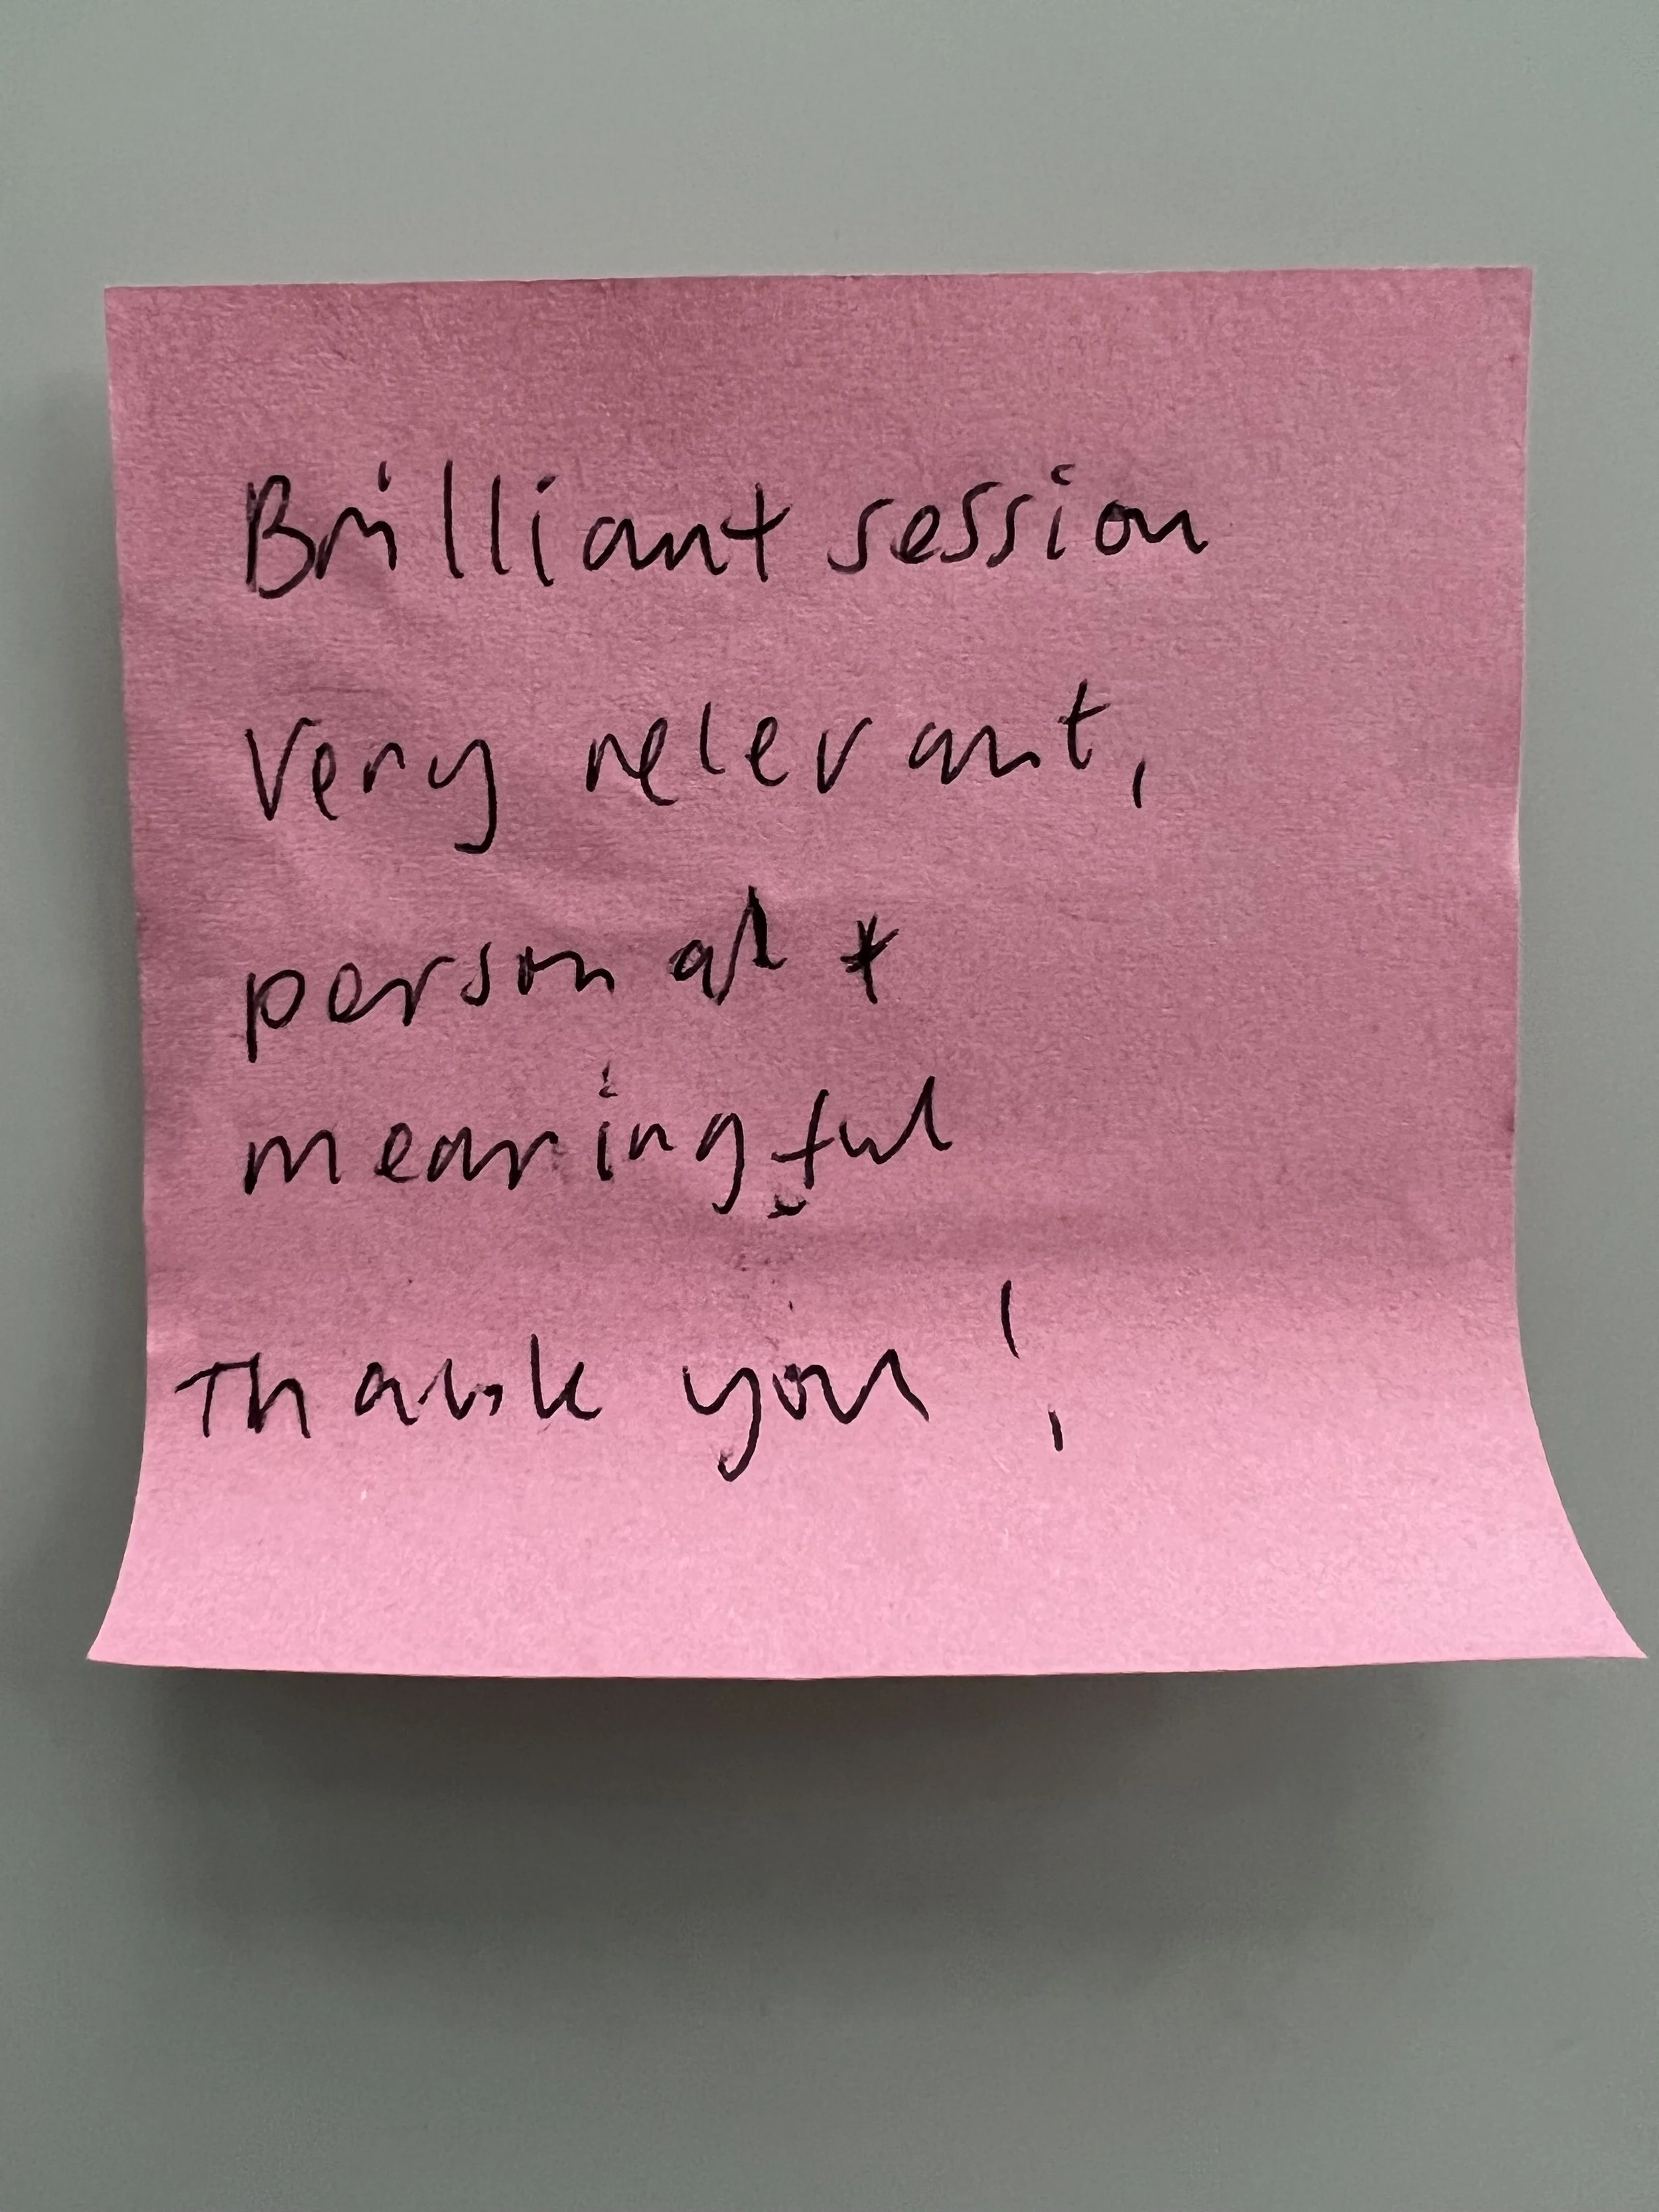 Brilliant session
Very relevant,
personal +
meaningful
Thank you!